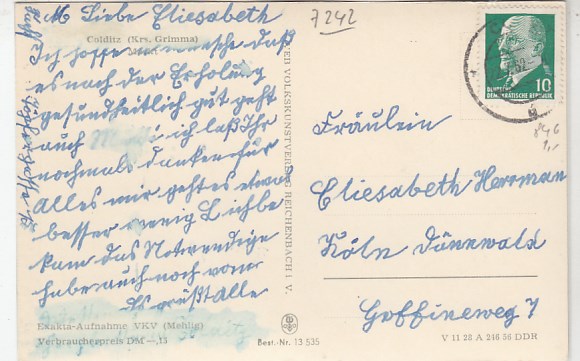 M Liebe Eliesabeth
Colditz (Krs. Grimma)
Ich hoffe u wünsche daß
es nach der Erholung
gesundheitlich gut geht
auch M i ich laß Ihr
nochmals danken für
Alles mir geht es etwas
besser wenig L ich be
kam das Notwendige
habe auch noch vom
Es grüßt Alle
Exakta-Aufnahme VKV (Mehlig)
Verbraucherpreis DM —,13
VEB VOLKSKUNSTVERLAG REICHENBACH i. V.
Best.-Nr. 13 535
7242
10
DEUTSCHE
DEMOKRATISCHE REPUBLIK
Fräulein
Eliesabeth Herrman
Köln Dünnwald
Goffineweg 7
V 11 28 A 246 56 DDR